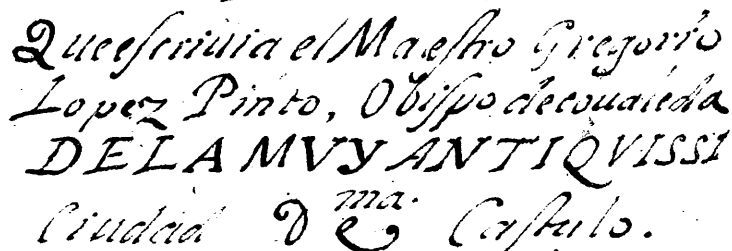 Queescriuia el Maestro Gregorio
Lopez Pinto, Obispo decoualeda
DE LA MVY ANTIQVISSI
Ciudad De ma. Castulo.